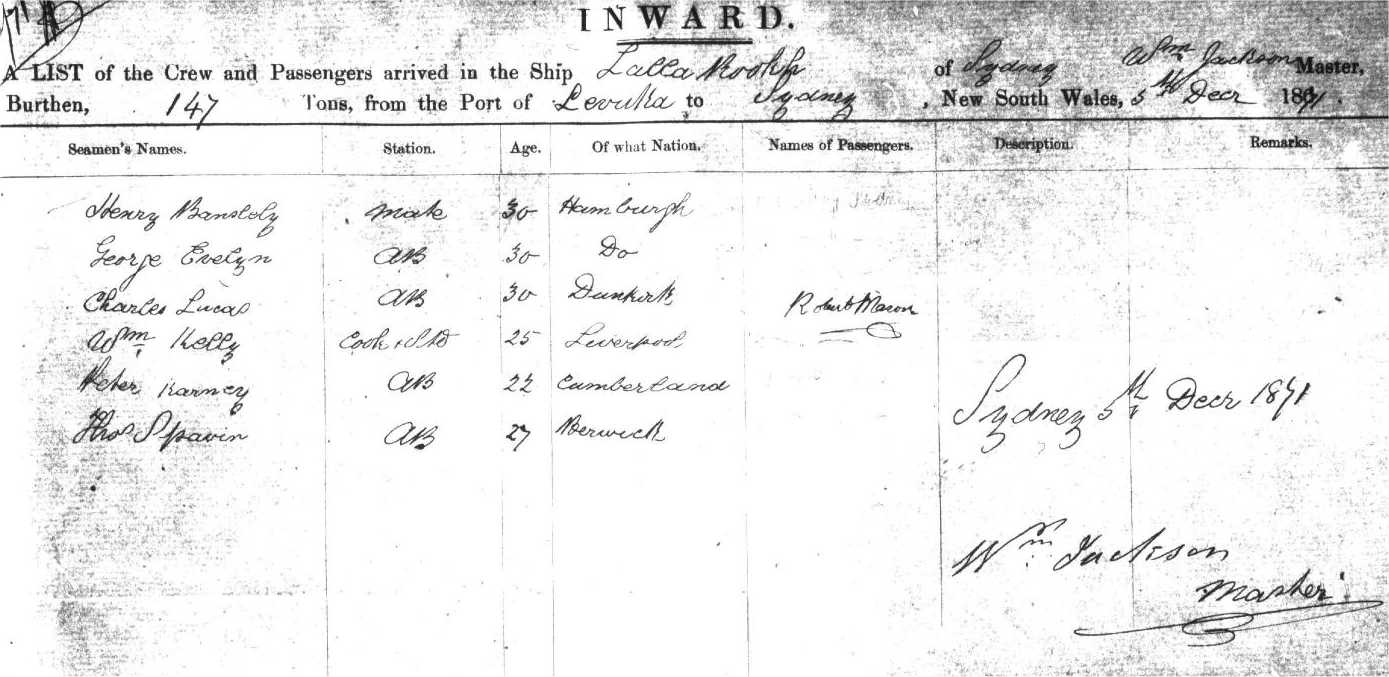 INWARD.
A LIST of the Crew and Passengers arrived in the Ship Lalla Rookh of Sydney Wm Jackson Master,
Burthen, 147 Tons, from the Port of Levuka to Sydney, New South Wales, 5th Decr 1871.
Seamen's Names. Station. Age. Of what Nation. Names of Passengers. Description. Remarks.
Henry mate 30 Hamburgh
George Evelyn AB 30 Do
Charles Lucas AB 30 Dunkirk Robert Mason
Wm Kelly Cook & Std 25 Liverpool
Peter Karney AB 22 Cumberland
Sydney 5th Decr 1871
Thos Spavin AB 27 Berwick
Wm Jackson
Master